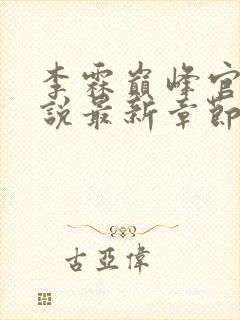 李霖巔峰官
說最新章節
古亞偉